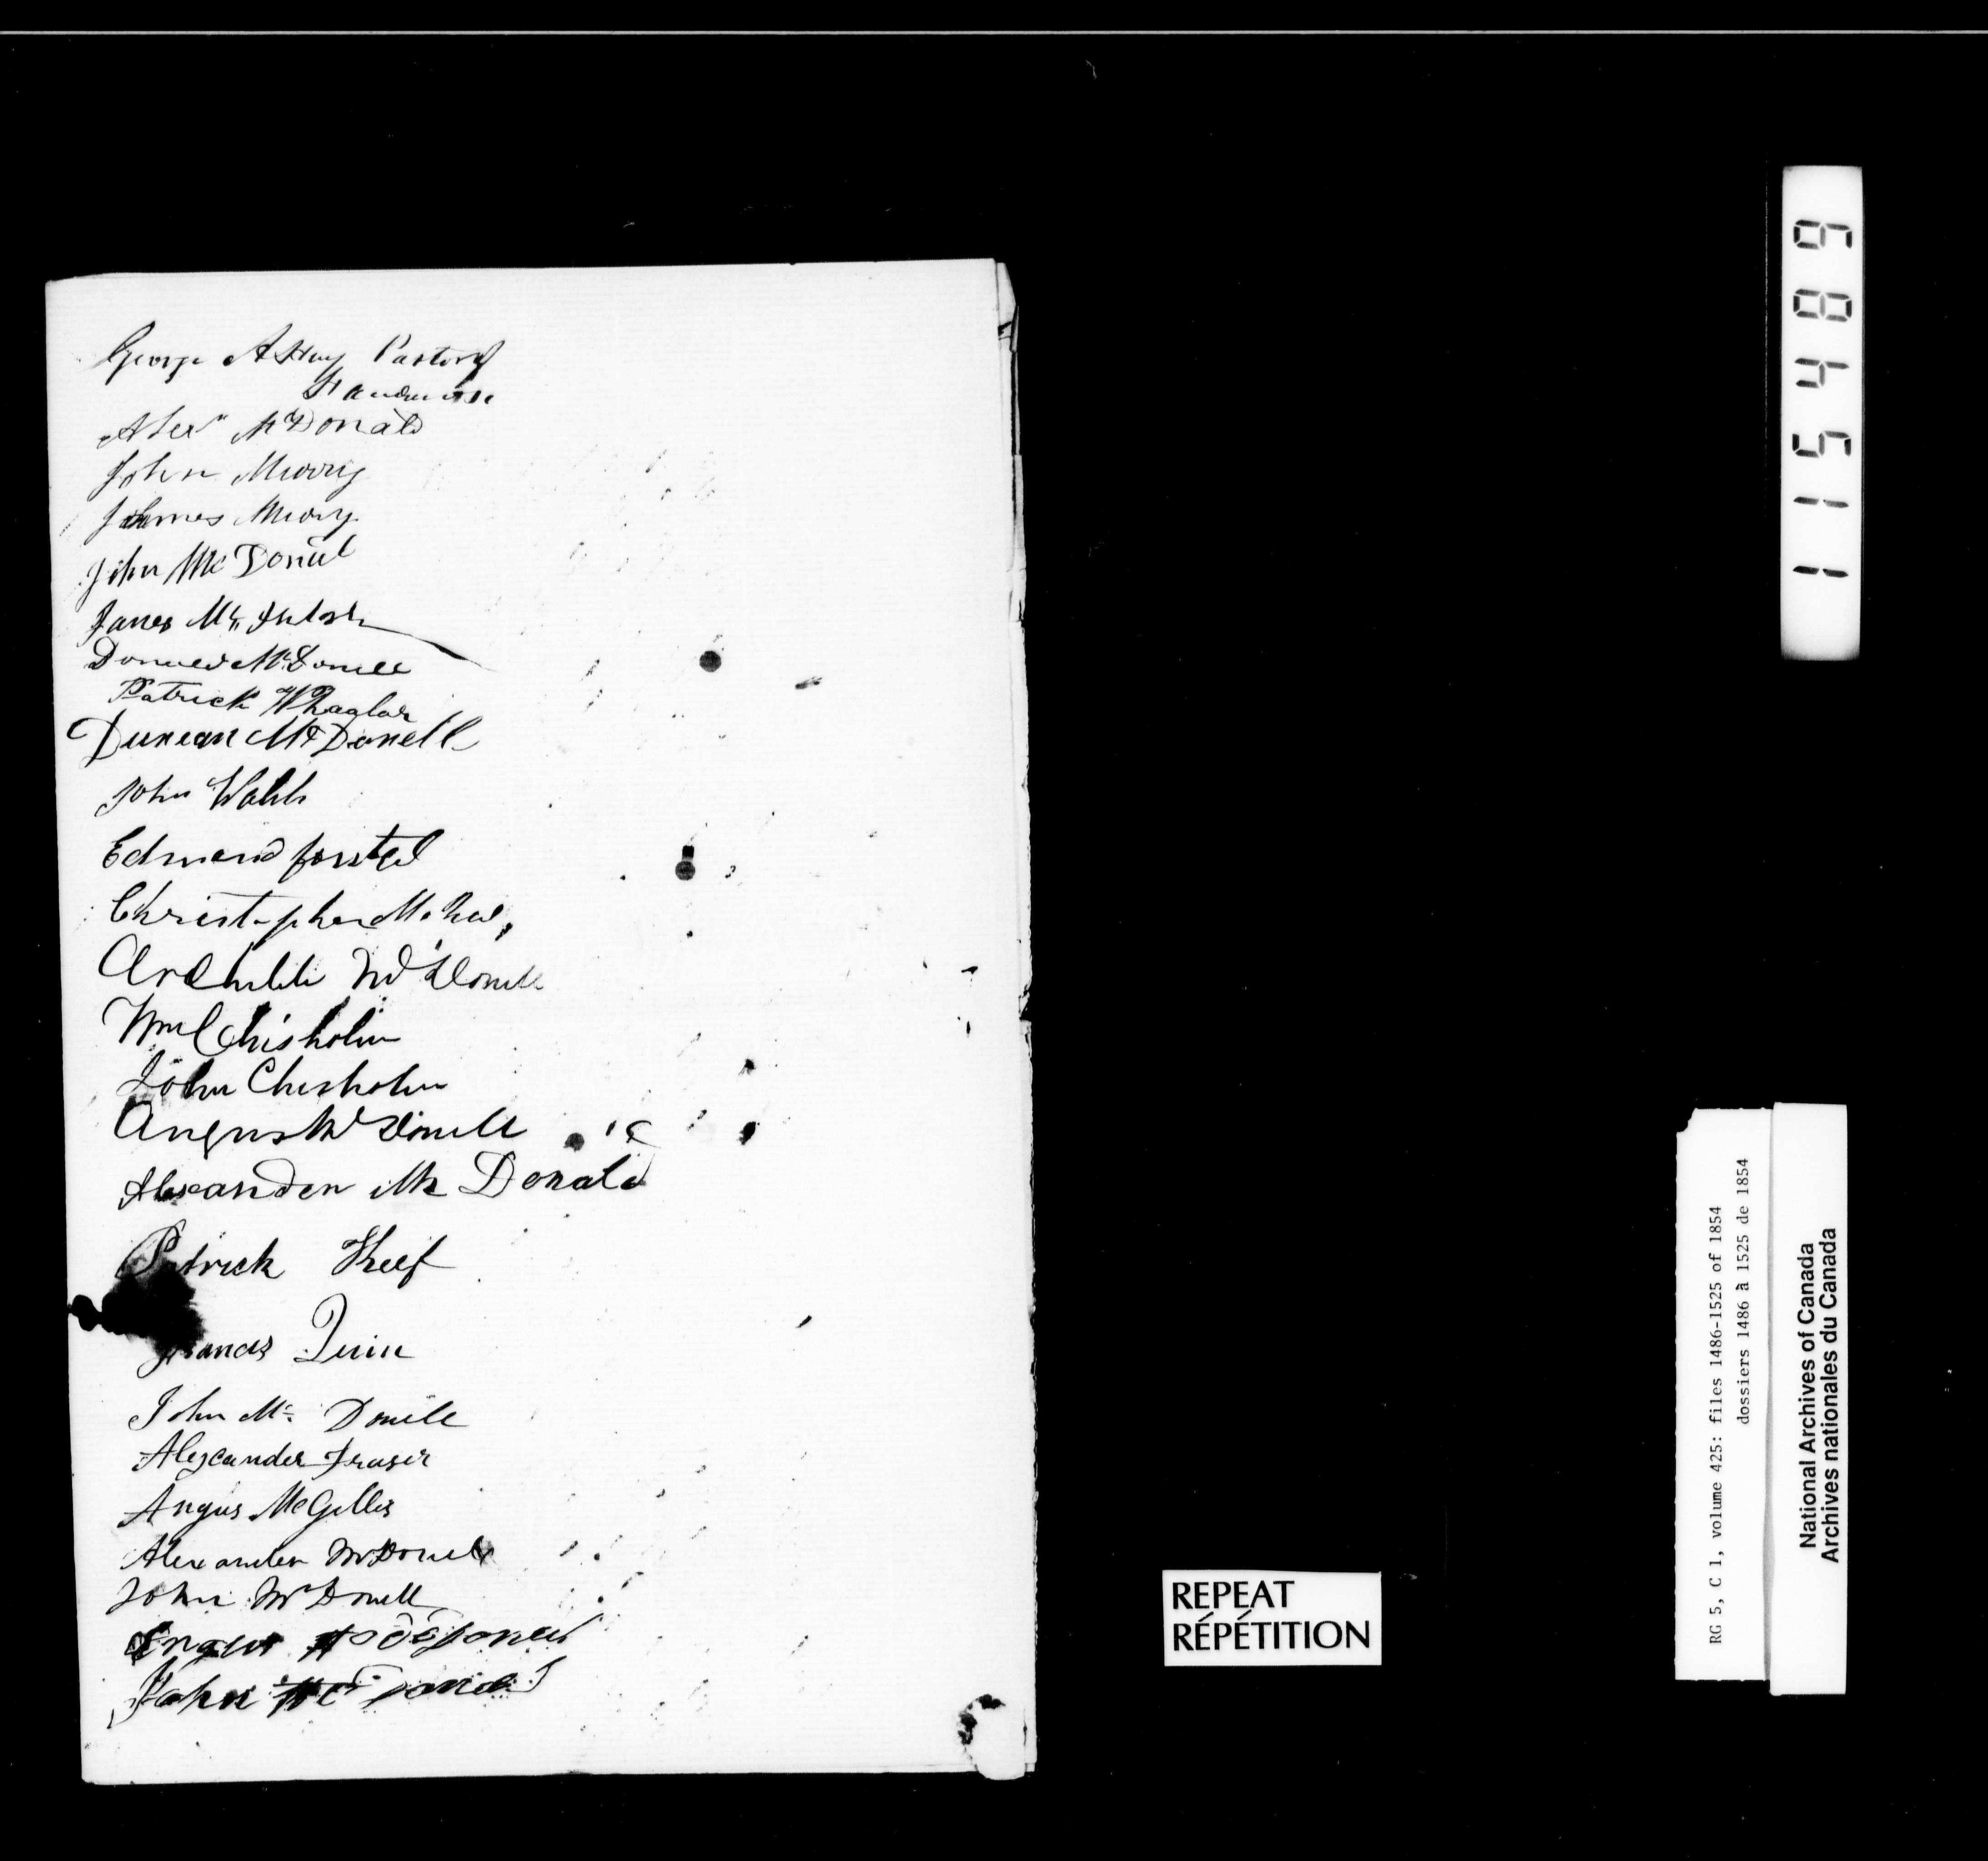 George A Hay Pastor of
St Andrews
Alexr McDonald
John Murry
James Murry
John McDonel
James Mc Intosh
Donald McDonell
Patrick Whaglar
Duncan McDonell
John Walsh
Edmond
Christopher
McDonell
Wm Chisholm
John Chisholm
Angus McDonell
Alexander Mc Donald
Patrick Keef
Francis Quin
John Mc Donell
Alexander Fraser
Angus McGillis
Alexander McDonell
John McDonell
Angus
John Mc
115489
RG 5, C 1, volume 425: files 1486-1525 of 1854
dossiers 1486 à 1525 de 1854
National Archives of Canada
Archives nationales du Canada
REPEAT
RÉPÉTITION